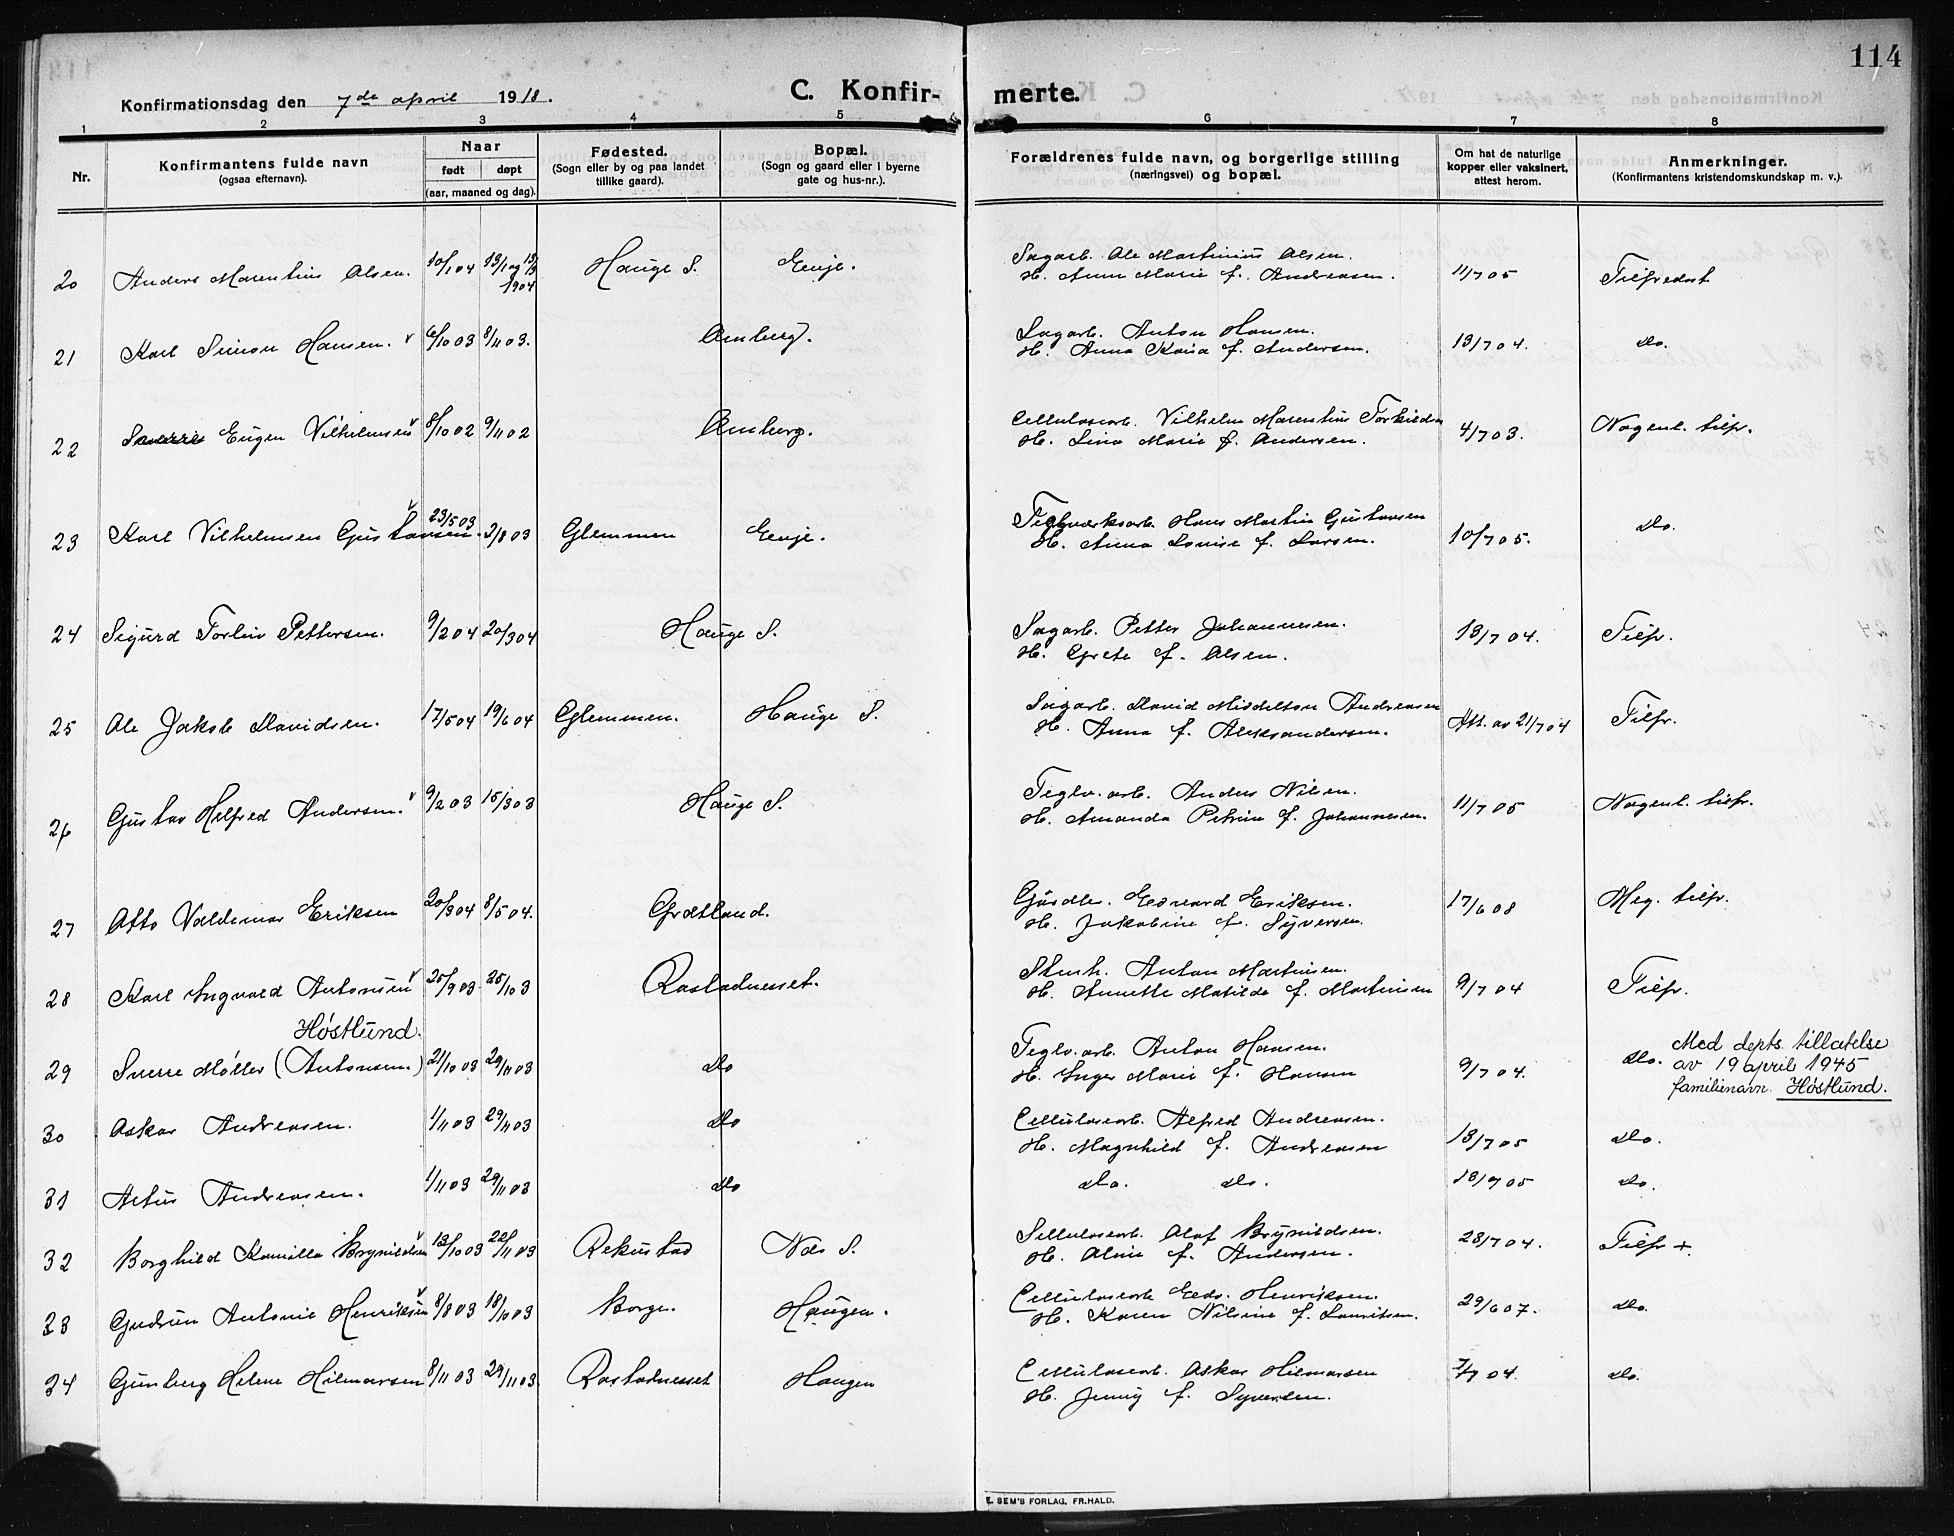 114
Konfirmationsdag den 7de april 1918.
C. Konfirmerte.
1 2 3 4 5 6 7 8
Nr.
Konfirmantens fulde navn
(ogsaa efternavn).
Naar
født døpt
(aar, maaned og dag).
Fødested.
(Sogn eller by og paa landet
tillike gaard).
Bopæl.
(Sogn og gaard eller i byerne
gate og hus-nr.).
Forældrenes fulde navn, og borgerlige stilling
(næringsvei) og bopæl.
Om hat de naturlige
kopper eller vaksinert,
attest herom.
Anmerkninger.
(Konfirmantens kristendomskundskap m. v.).
Sagarb. Ole Martinius Olsen.
20 Anders Marentius Olsen. 10/1 04 13/1 og 13/3 1904 Hauge S. Evje. H. Anne Marie f. Andreasen. 11/7 05 Tilfredsst
Sagarb. Anton Hansen.
21 Karl Simon Hansen. v 6/10 03 8/11 03. Omberg. H. Anna Karia f. Andersen. 13/7 04. Do.
Cellulosearb. Vilhelm Marentius Torkildsen
22 Sverre Eugen Vilhelmsen v 8/10 02 9/11 02 Omberg. H. Lina Marie f. Andersen. 4/7 03. Nogenl. tilfr.
Teglverksarb. Hans Martin Gustavsen
23 Karl Vilhelmsen Gustavsen. v 23/5 03 2/8 03 Glemmen Evje. H. Anna Lovise f. Larsen. 10/7 05. Do.
Sagarb. Petter Johannesen.
24 Sigurd Torleiv Pettersen. 9/2 04 20/3 04 Hauge S. H. Grete f. Olsen. 13/7 04. Tilfr.
Sagarb. David Middelton Andreasen
25 Ole Jakob Davidsen. 17/5 04 19/6 04 Glemmen. Hauge S. H. Anna f. Aleksandersen. Att. av 21/7 04 Tilfr.
Teglv. arb. Anders Nilsen.
26 Gustav Helfred Andersen. v 9/2 03 15/3 03 Hauge S. H. Amanda Petrine f. Johannesen. 11/7 05 Nogenl. tilfr.
Edvard Eriksen.
27 Otto Valdemar Eriksen 20/3 04 8/5 04. Grætland. H. Jakobine f. Syversen. 17/6 08 Meg. tilfr.
Anton Martinsen.
28 Karl Ingvald Antonsen v 25/9 03 25/10 3 Rostadnesset. H. Annette Matilde f. Martinsen 9/7 04 Tilfr.
Høstlund.
Teglv. arb. Anton Hansen.
29 Sverre Møller (Antonsen.) 21/10 03 29/11 03 Do H. Inger Marie f. Hansen 9/7 04. Do.
Med depts. tillatelse
av 19 april 1945
familienavn Høstlund.
Cellulosearb. Alfred Andreasen.
30 Oskar Andreasen. 1/11 03 29/11 03 Do H. Magnhild f. Andreasen 13/7 05 Do.
31 Artur Andreasen. 1/11 03 29/11 03 Do Do. Do. 18/9 05 Do.
Sellulosearb. Olaf Brynildsen.
32 Borghild Kamilla Brynildsen v 13/10 03 22/11 03 Rekustad Nes S. H. Oline f. Andersen. 28/7 04. Tilfr +.
Cellulosearb. Edv. Henriksen.
33 Gudrun Antonie Henriksen v 8/8 03 18/10 03 Borge. Haugen. H. Karen Nilsine f. Lauritsen. 29/6 07. Do.
Cellulosearb. Oskar Hilmarsen
34 Gunberg Helene Hilmarsen 8/11 03 29/11 03 Rostadnesset Haugen H. Jenny f. Syversen. 7/7 04. Do.
E. SEM'S FORLAG, FR.HALD.